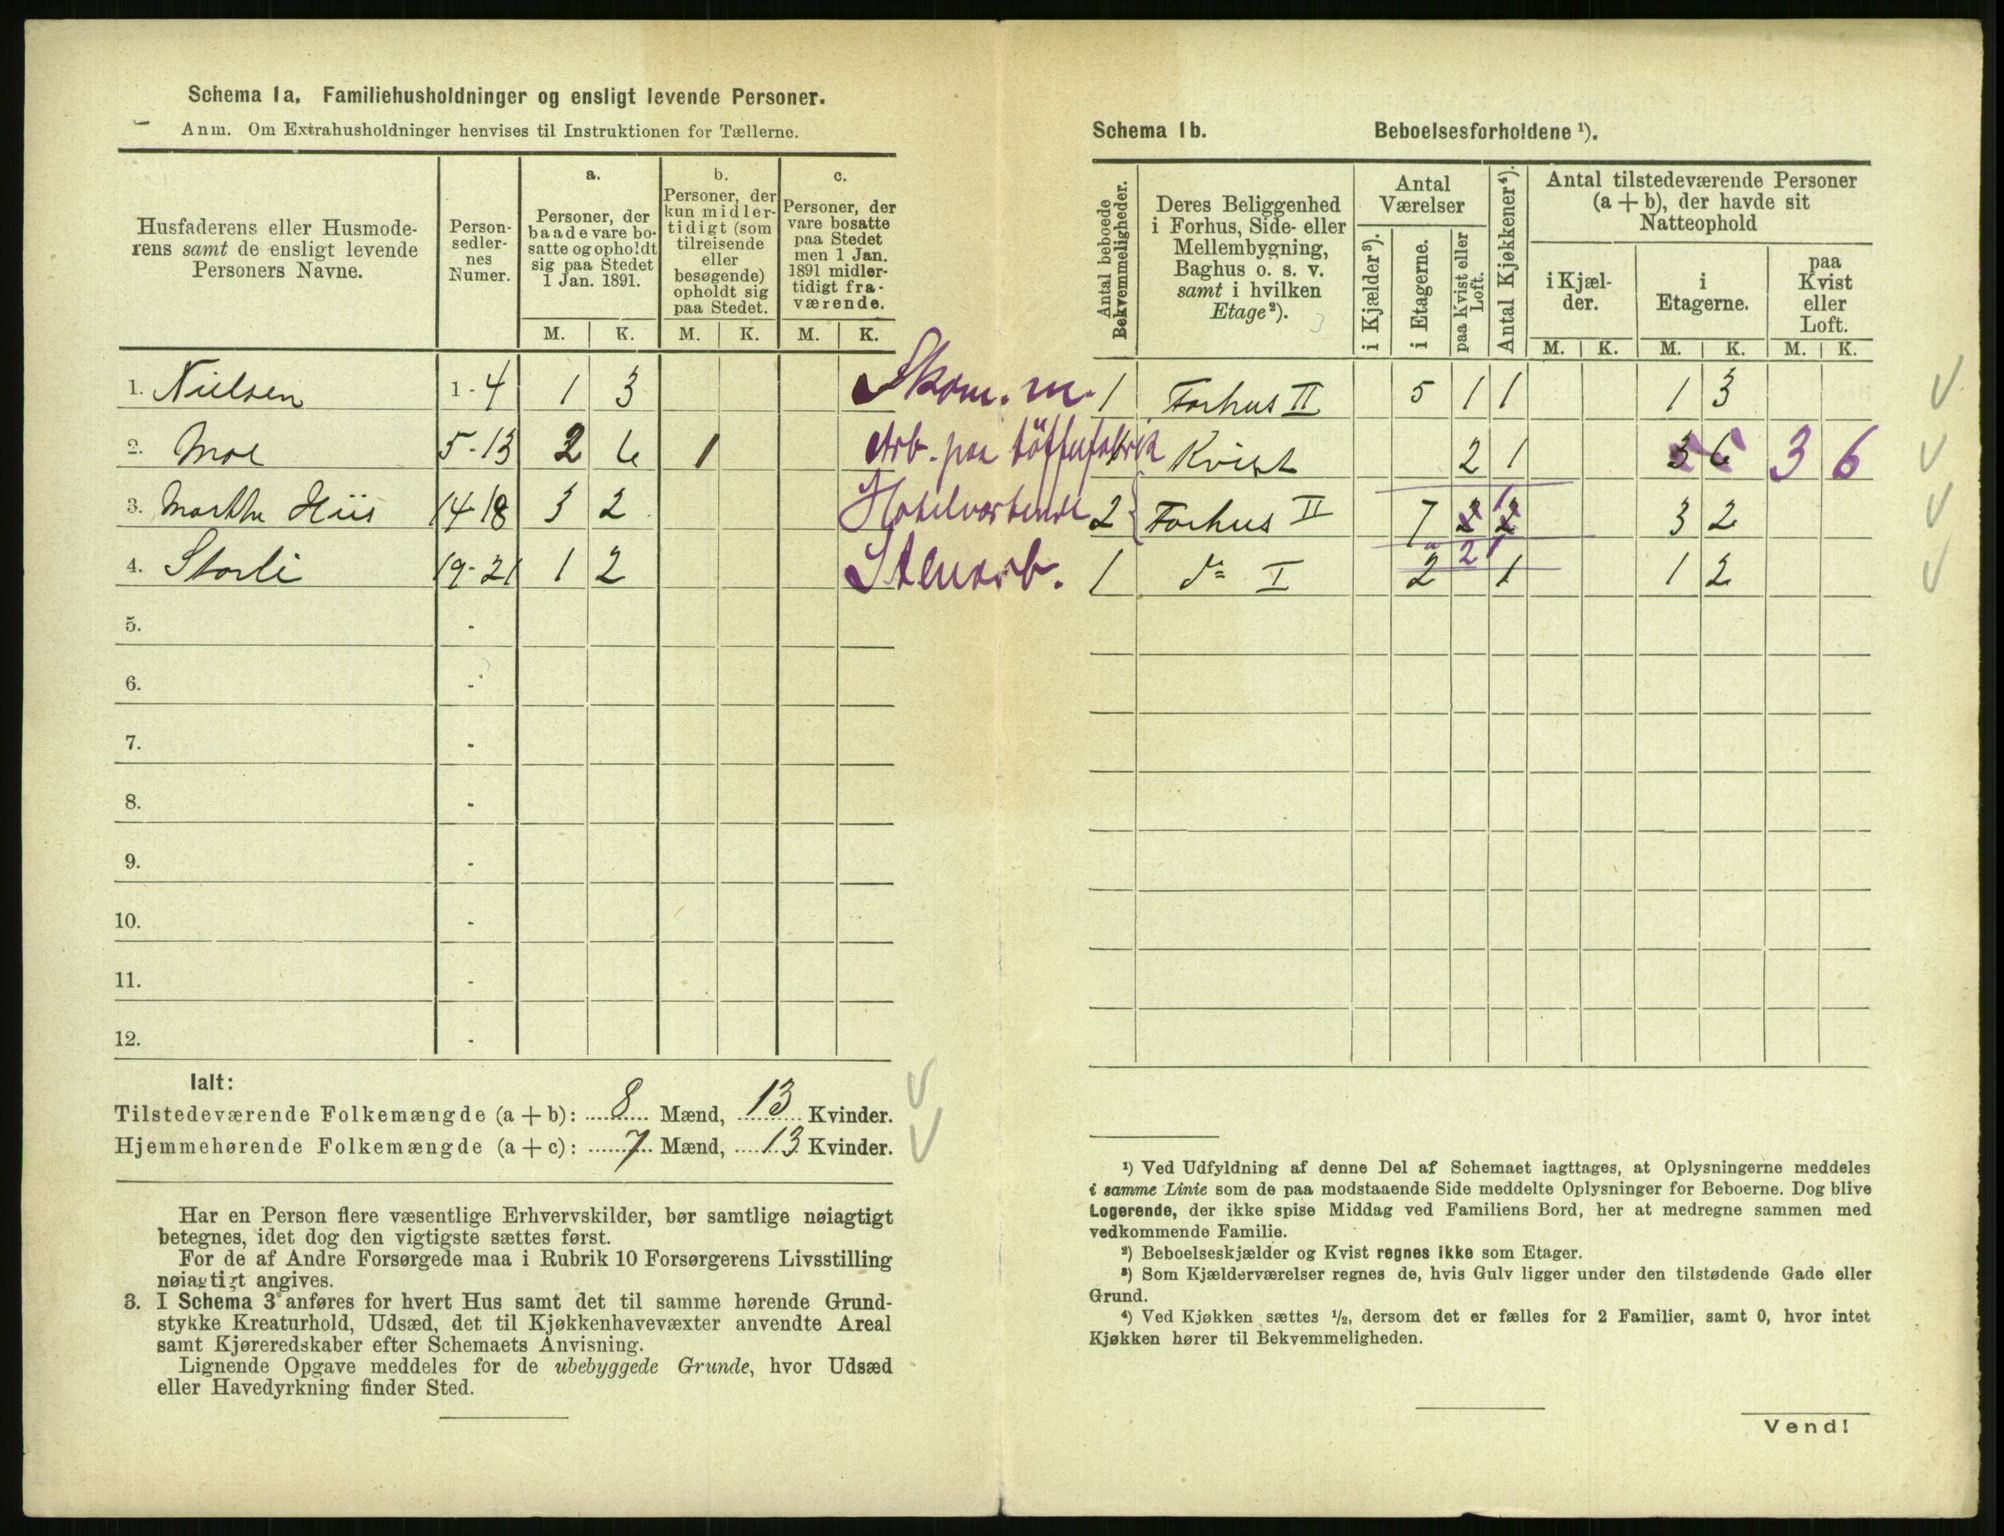 Schema 1a. Familiehusholdninger og ensligt levende Personer.
Anm. Om Extrahusholdninger henvises til Instruktionen for Tællerne.
Husfaderens eller Husmode-
rens samt de ensligt levende
Personers Navne.
Person-
sedler-
nes
Numer.
a.
Personer, der
baade vare bo-
satte og opholdt
sig paa Stedet
1 Jan. 1891.
b.
Personer, der
kun midler-
tidigt (som
tilreisende
eller
besøgende)
opholdt sig
paa Stedet.
c.
Personer, der
vare bosatte
paa Stedet
men 1 Jan.
1891 midler-
tidigt fra-
værende.
M. K. M. K. M. K.
1. Nielsen 1-4 1 3 Skom. m.
2. Moe 5-13 2 6 1 Arb. paa
3. Marthe Hiis 14-18 3 2 Hotelvartinde
4. Storli 19-21 1 2 Stenarb.
5. -
6. -
7. -
8. -
9. -
10. -
11. -
12. -
Ialt:
Tilstedeværende Folkemængde (a + b): 8 Mænd, 13 Kvinder.
Hjemmehørende Folkemængde (a + c): 7 Mænd, 13 Kvinder.
Har en Person flere væsentlige Erhvervskilder, bør samtlige nøiagtigt
betegnes, idet dog den vigtigste sættes først.
For de af Andre Forsørgede maa i Rubrik 10 Forsørgerens Livsstilling
nøiagtigt angives.
3. I Schema 3 anføres for hvert Hus samt det til samme hørende Grund-
stykke Kreaturhold, Udsæd, det til Kjøkkenhavevæxter anvendte Areal
samt Kjøreredskaber efter Schemaets Anvisning.
Lignende Opgave meddeles for de ubebyggede Grunde, hvor Udsæd
eller Havedyrkning finder Sted.
Schema 1b. Beboelsesforholdene ¹).
Antal beboede
Bekvemmeligheder.
Deres Beliggenhed
i Forhus, Side- eller
Mellembygning,
Baghus o. s. v.
samt i hvilken
Etage²).
Antal
Værelser
i Kjælder³).
i Etagerne.
paa Kvist eller
Loft.
Antal Kjøkkener⁴).
Antal tilstedeværende Personer
(a + b), der havde sit
Natteophold
i Kjæl-
der.
i
Etagerne.
paa
Kvist
eller
Loft.
M. K. M. K. M. K.
1 Forhus II 5 1 1 1 3
1 Kvist 2 1 3 6 3 6
2 Forhus II 7 2 2 1 3 2
1 do I 2 2 1 1 1 2
¹) Ved Udfyldning af denne Del af Schemaet iagttages, at Oplysningerne meddeles
i samme Linie som de paa modstaaende Side meddelte Oplysninger for Beboerne. Dog blive
Logerende, der ikke spise Middag ved Familiens Bord, her at medregne sammen med
vedkommende Familie.
²) Beboelseskjælder og Kvist regnes ikke som Etager.
³) Som Kjælderværelser regnes de, hvis Gulv ligger under den tilstødende Gade eller
Grund.
⁴) Ved Kjøkken sættes ½, dersom det er fælles for 2 Familier, samt 0, hvor intet
Kjøkken hører til Bekvemmeligheden.
Vend!